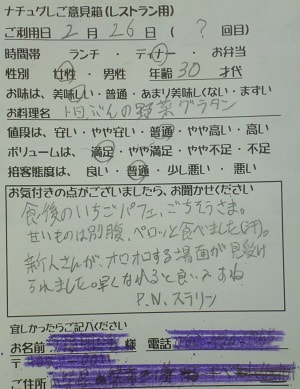 ナチュグしご意見箱(レストラン用)
ご利用日 2月 26日 ( ? 回目)
時間帯 ランチ・ディナー・お弁当
性別 女性・男性 年齢 30 才代
お味は、美味しい・普通・あまり美味しくない・まずい
お料理名 1日ぶんの野菜グラタン
値段は、安い・やや安い・普通・やや高い・高い
ボリュームは、満足・やや満足・やや不足・不足
接客態度は、良い・普通・少し悪い・悪い
お気付きの点がございましたら、お聞かせください
食後のいちごパフェ、ごちそうさま。
甘いものは別腹、ペロッと食べました(汗)。
新人さんが、オロオロする場面が見受け
られました。早くなれると良いですね
P.N.スラリン
宜しかったらご記入ください
お名前 様 電話
〒
ご住所